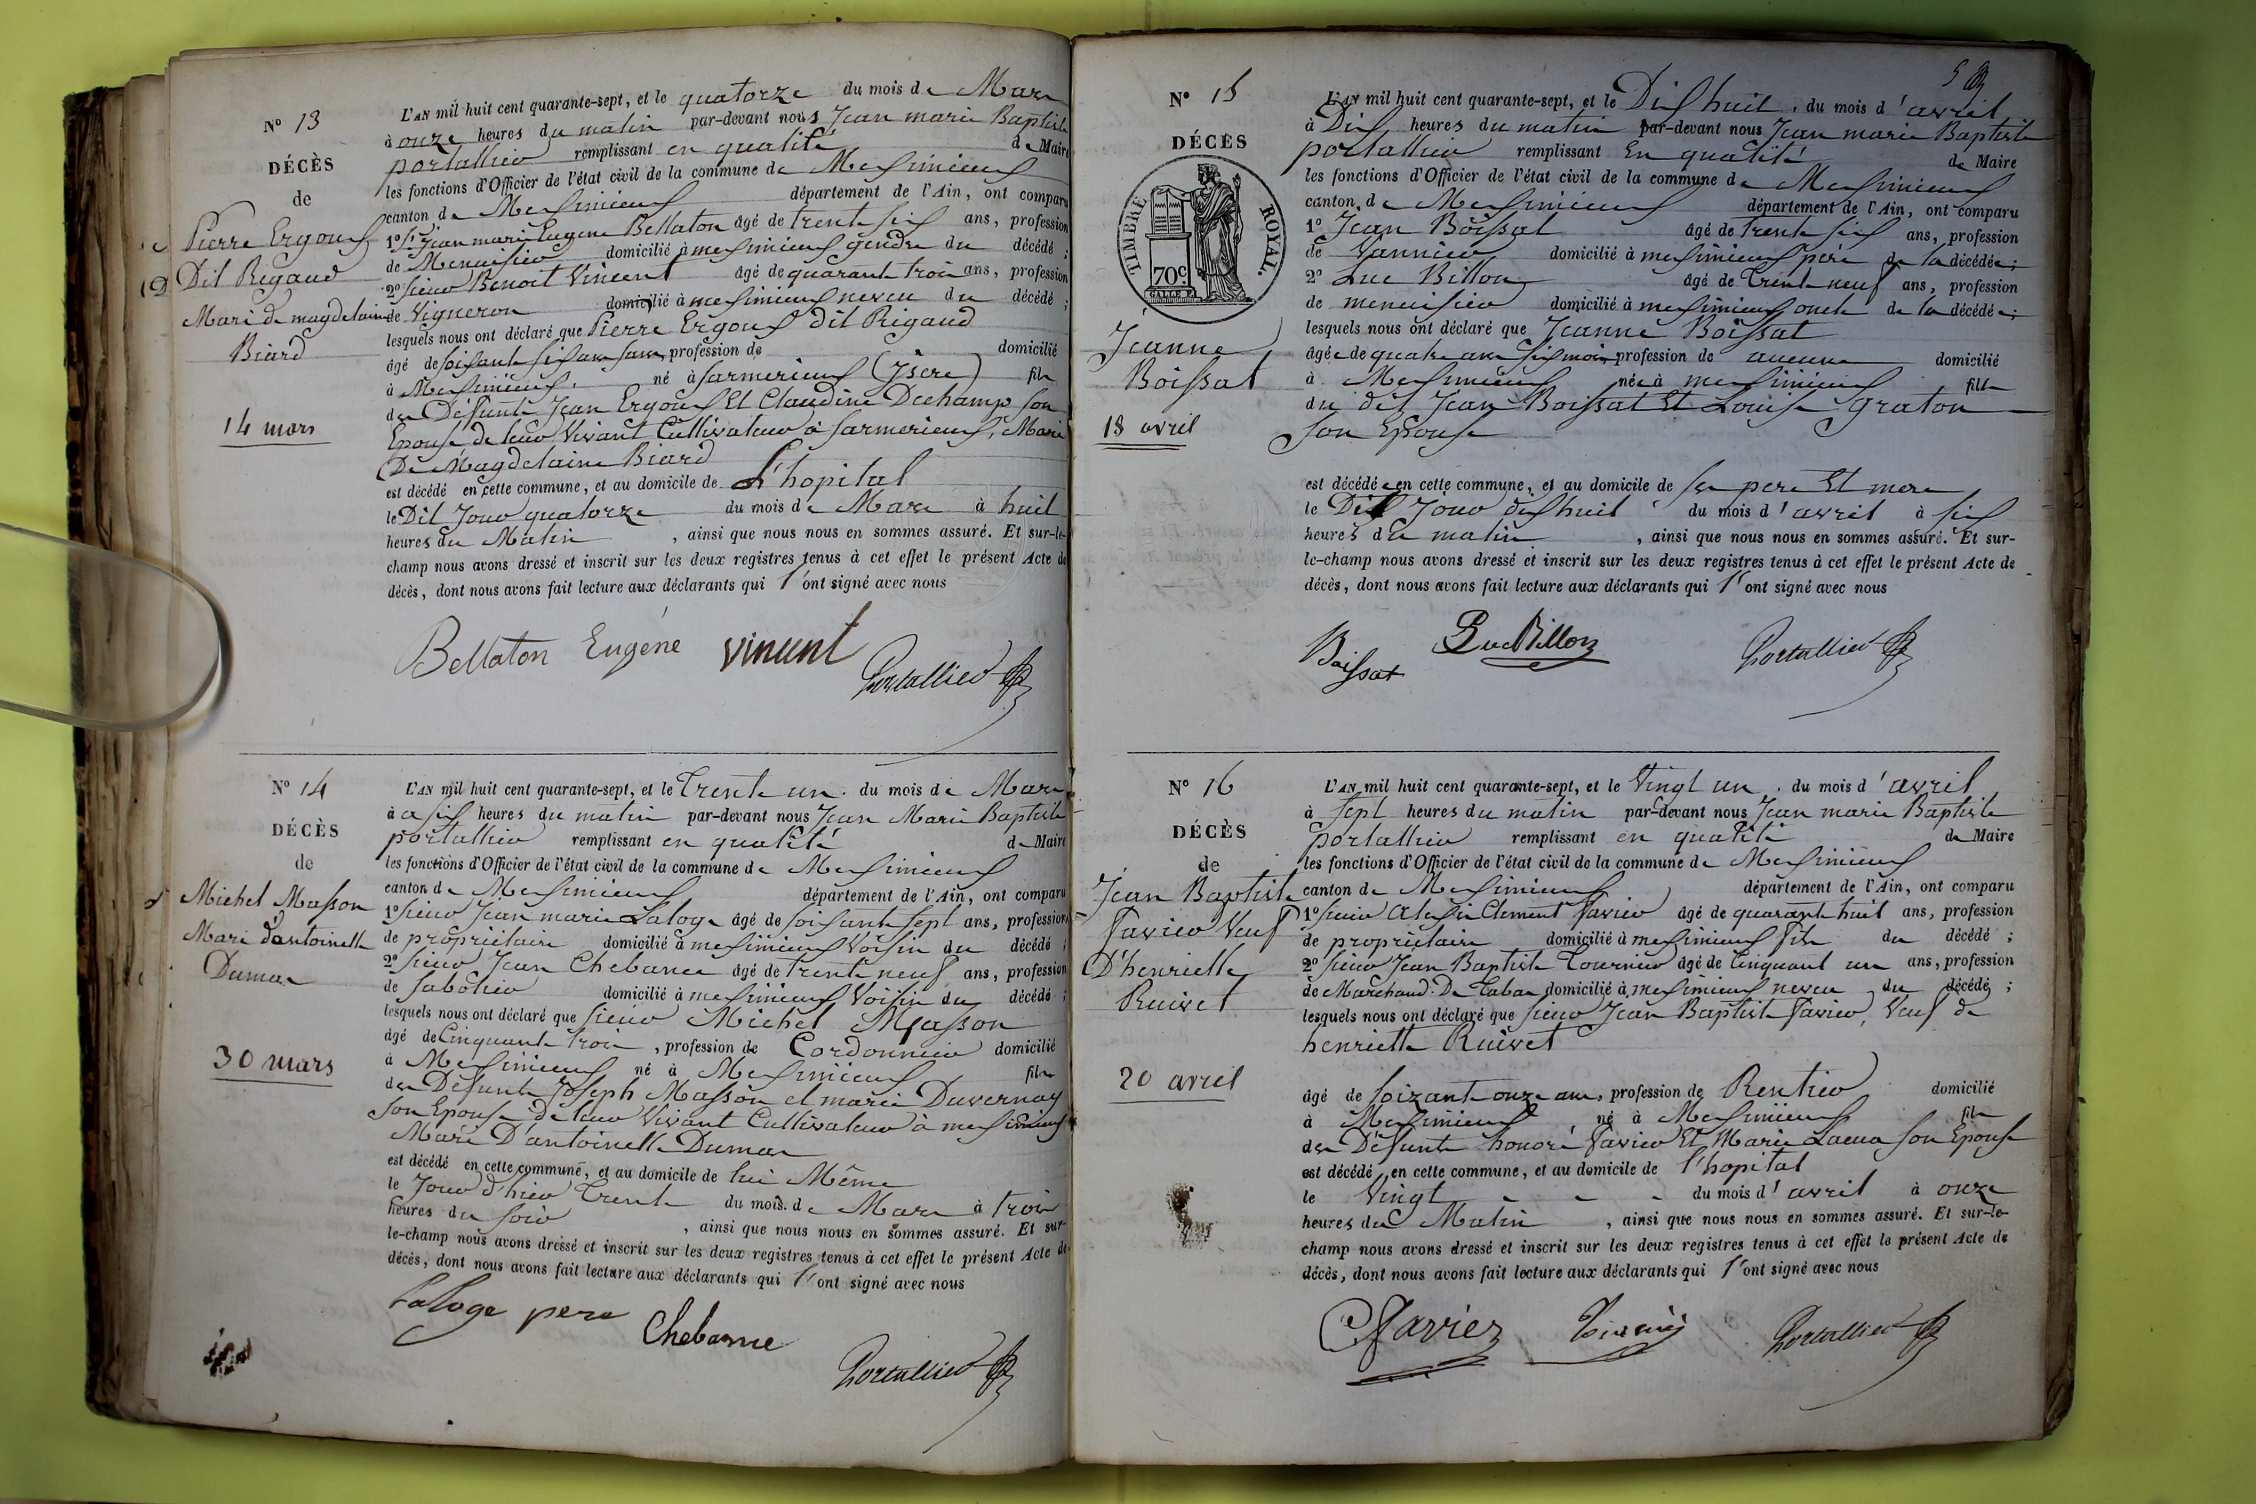 N° 13
DÉCÈS
de
Pierre Ergoux
Dit Rigaud
Mari de magdelaine
Biard
14 mars
L'AN mil huit cent quarante-sept, et le quatorze du mois de Mars
à onze heures du matin par-devant nous Jean marie Baptiste
portallier remplissant en qualité de Maire
les fonctions d'Officier de l'état civil de la commune de Meximieux
canton de Meximieux département de l'Ain, ont comparu
1° Sr Jean marie Eugene Bellaton âgé de trente six ans, profession
de Menuisier domicilié à meximieux gendre du décédé ;
2° sieur Benoit Vincent âgé de quarante trois ans, profession
de Vigneron domicilié à meximieux neveu du décédé ;
lesquels nous ont déclaré que Pierre Ergoux dit Rigaud
âgé de soixante six ans sans profession de domicilié
à Meximieux né à Sarmerieux (Jsère) fils
des Défunts Jean Ergoux Et Claudine Dechamps son
Epouse de leur Vivant Cultivateur à Sarmerieux, Mari
De Magdelaine Biard
est décédé en cette commune, et au domicile de L'hopital
le Dit Jour quatorze du mois de Mars à huit
heures du Matin , ainsi que nous nous en sommes assuré. Et sur-le-
champ nous avons dressé et inscrit sur les deux registres tenus à cet effet le présent Acte de
décès, dont nous avons fait lecture aux déclarants qui l'ont signé avec nous
Bellaton Eugéne Vincent
Portallier
N° 14
DÉCÈS
de
Michel Masson
Mari d'antoinette
Dumas
30 mars
L'AN mil huit cent quarante-sept, et le Trente un du mois de Mars
à six heures du matin par-devant nous Jean Marie Baptiste
portallier remplissant en qualité de Maire
les fonctions d'Officier de l'état civil de la commune de Meximieux
canton de Meximieux département de l'Ain, ont comparu
1° sieur Jean marie Laloge âgé de soixante sept ans, profession
de propriétaire domicilié à meximieux Voisin du décédé ;
2° sieur Jean Chebance âgé de trente neuf ans, profession
de Sabotier domicilié à meximieux Voisin du décédé ;
lesquels nous ont déclaré que sieur Michel Masson
âgé de Cinquante trois , profession de Cordonnier domicilié
à Meximieux né à Meximieux fils
des Défunts Joseph Masson et marie Duvernay
son Epouse de leur Vivant Cultivateur à meximieux
Mari D'antoinette Dumas
est décédé en cette commune, et au domicile de lui Même
le Jour d'hier Trente du mois de Mars à trois
heures du soir , ainsi que nous nous en sommes assuré. Et sur-
le-champ nous avons dressé et inscrit sur les deux registres tenus à cet effet le présent Acte de
décès, dont nous avons fait lecture aux déclarants qui l'ont signé avec nous
Laloge pere Chebance
Portallier
5
N° 15
DÉCÈS
TIMBRE ROYAL.
70c.
Jeanne
Boissat
18 avril
L'AN mil huit cent quarante-sept, et le Dix huit du mois d'avril
à Dix heures du matin par-devant nous Jean marie Baptiste
portallier remplissant En qualité de Maire
les fonctions d'Officier de l'état civil de la commune de Meximieux
canton de Meximieux département de l'Ain, ont comparu
1° Jean Boissat âgé de trente six ans, profession
de Vannier domicilié à meximieux père de la décédée ;
2° Luc Billon âgé de Trente neuf ans, profession
de menuisier domicilié à meximieux oncle de la décédée ;
lesquels nous ont déclaré que Jeanne Boissat
âgée de quatre ans six mois profession de aucune domicilié
à Meximieux née à meximieux fille
du dit Jean Boissat Et Louise Graton
son Epouse
est décédée en cette commune, et au domicile de ses pere Et mere
le Dit Jour dix huit du mois d'avril à six
heures du matin , ainsi que nous nous en sommes assuré. Et sur-
le-champ nous avons dressé et inscrit sur les deux registres tenus à cet effet le présent Acte de
décès, dont nous avons fait lecture aux déclarants qui l'ont signé avec nous
Boissat Luc Billon Portallier
N° 16
DÉCÈS
de
Jean Baptiste
Favier Veuf
D'henriette
Ruivet
20 avril
L'AN mil huit cent quarante-sept, et le Vingt un du mois d'avril
à sept heures du matin par-devant nous Jean marie Baptiste
portallier remplissant en qualité de Maire
les fonctions d'Officier de l'état civil de la commune de Meximieux
canton de Meximieux département de l'Ain, ont comparu
1° sieur Clement Favier âgé de quarante huit ans, profession
de propriétaire domicilié à meximieux fils du décédé ;
2° sieur Jean Baptiste Tournier âgé de Cinquante un ans, profession
de Marchand De Tabac domicilié à meximieux neveu du décédé ;
lesquels nous ont déclaré que sieur Jean Baptiste Favier, Veuf de
henriette Ruivet
âgé de soixante onze ans, profession de Rentier domicilié
à Meximieux né à Meximieux fils
des Défunts honoré Favier Et Marie Lacua son Epouse
est décédé en cette commune, et au domicile de l'hopital
le Vingt du mois d'avril à onze
heures du Matin , ainsi que nous nous en sommes assuré. Et sur-le-
champ nous avons dressé et inscrit sur les deux registres tenus à cet effet le présent Acte de
décès, dont nous avons fait lecture aux déclarants qui l'ont signé avec nous
C Favier Tournier Portallier